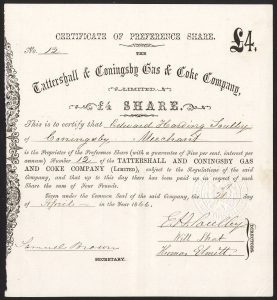 CERTIFICATE OF PREFERENCE SHARE.
No. 12
£4.
THE
Tattershall & Coningsby Gas & Coke Company,
LIMITED.
£4 SHARE.
This is to certify that Edward Harding
of Coningsby Merchant
is the Proprietor of the Preference Share (with a guarantee of Five per cent. interest per
annum) Number 12 of the TATTERSHALL AND CONINGSBY GAS
AND COKE COMPANY (LIMITED), subject to the Regulations of the said
Company, and that up to this day there has been paid up in respect of such
Share the sum of Four Pounds.
Given under the Common Seal of the said Company, the
day
of April in the Year 1866.
Samuel Brown
SECRETARY.
DIRECTORS.